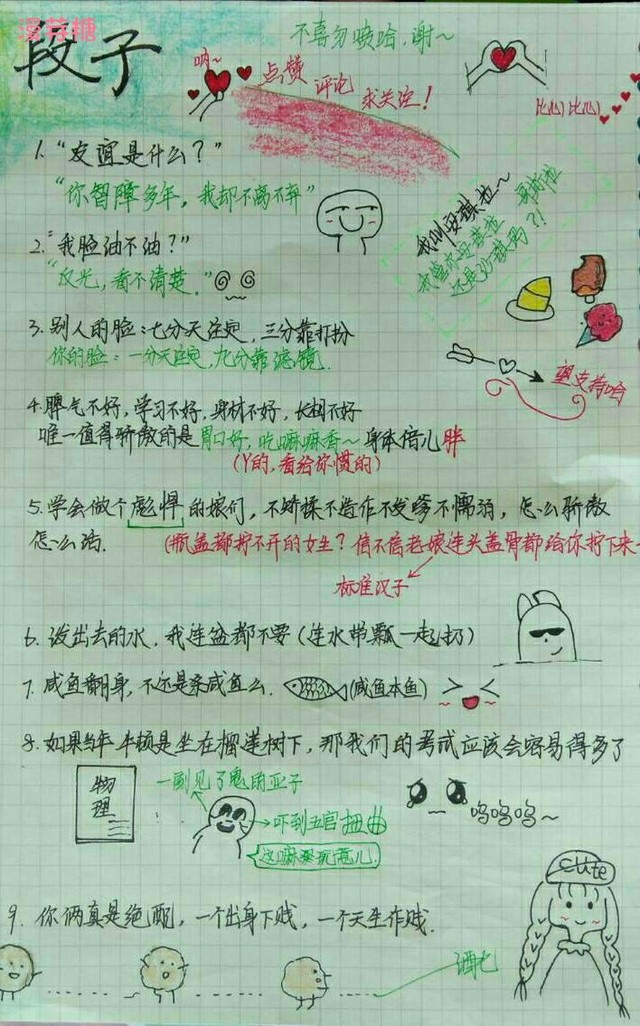 漫芽糖
段子
不喜勿喷哈,谢~
呐~
点赞
评论
求关注!
比心比心
1. "友谊是什么?"
"你智障多年,我却不离不弃"
我叫安琪拉~
我管你安琪拉
还是巧琪玛?!
2. "我脸油不油?"
"反光,看不清楚."
3. 别人的脸:七分天注定,三分靠打扮
你的脸:一分天注定,九分靠滤镜.
望支持哈
4. 脾气不好,学习不好,身材不好,长相不好
唯一值得骄傲的是胃口好,吃嘛嘛香~ 身体倍儿胖
(Y的,看给你惯的)
5. 学会做个彪悍的娘们,不矫揉不造作不发嗲不懦弱,怎么骄傲
怎么活. (瓶盖都拧不开的女生?信不信老娘连头盖骨都给你拧下来~
标准汉子
6. 泼出去的水,我连盆都不要(连水带瓢一起扔)
7. 咸鱼翻身,不还是条咸鱼么. (咸鱼本鱼)
8. 如果当年牛顿是坐在榴莲树下,那我们的考试应该会容易得多了
物理
一副见了鬼的亚子
吓到五官扭曲
这嘛玩意儿.
呜呜呜~
cute
9. 你俩真是绝配,一个出身下贱,一个天生作贱.
酒七